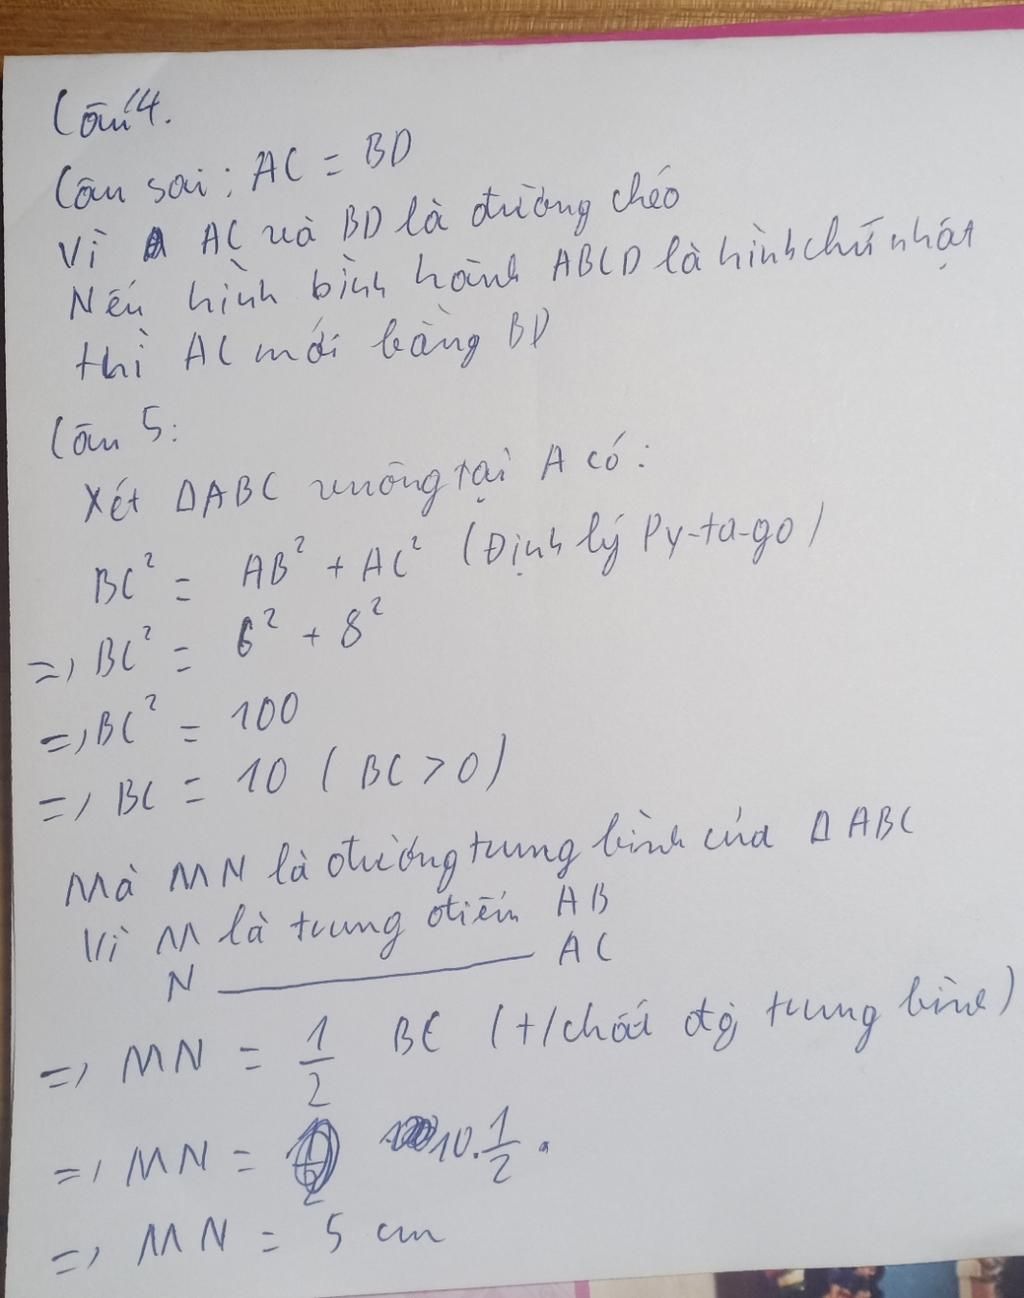 Câu 4.
Câu sai: AC = BD
Vì AC và BD là đường chéo
Nếu hình bình hành ABCD là hình chữ nhật
thì AC mới bằng BD
Câu 5:
Xét ΔABC vuông tại A có:
BC² = AB² + AC² (Định lý Py-ta-go)
=> BC² = 6² + 8²
=> BC² = 100
=> BC = 10 (BC > 0)
Mà MN là đường trung bình của ΔABC
Vì M là trung điểm AB
N ——— AC
=> MN = 1/2 BC (t/chất đg trung bình)
=> MN = 10. 1/2.
=> MN = 5 cm